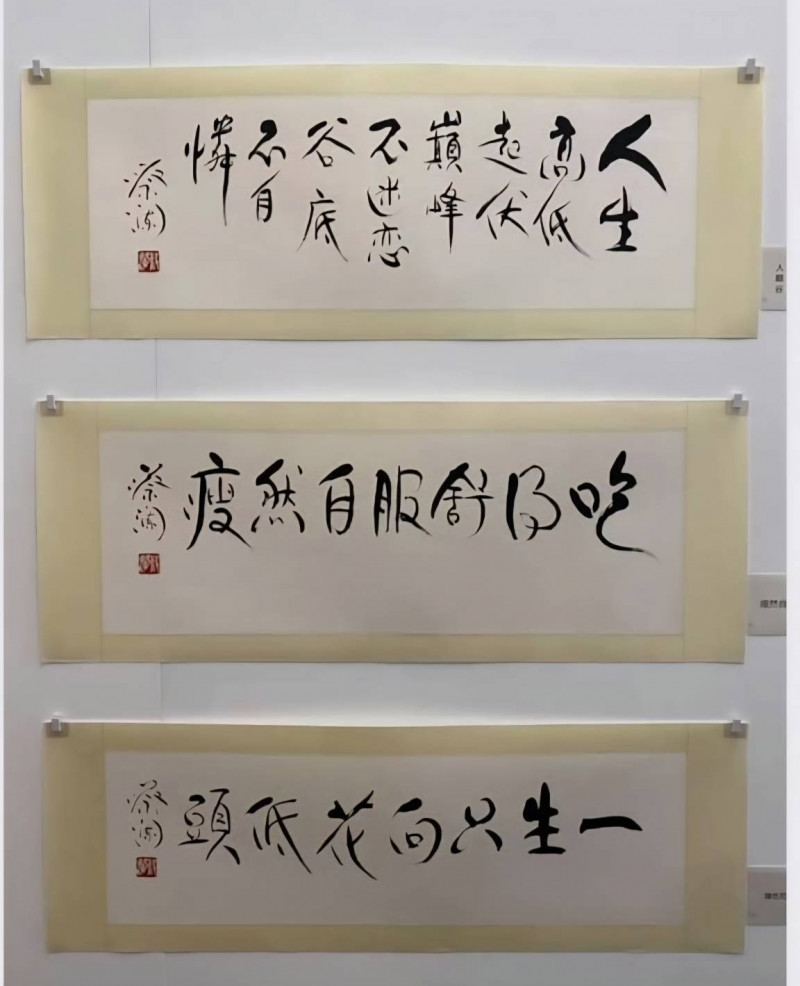 人生
高低
起伏
巔峰
不迷恋
谷底
不自
憐
蔡瀾
吃得舒服自然瘦
蔡瀾
一生只向花低頭
蔡瀾